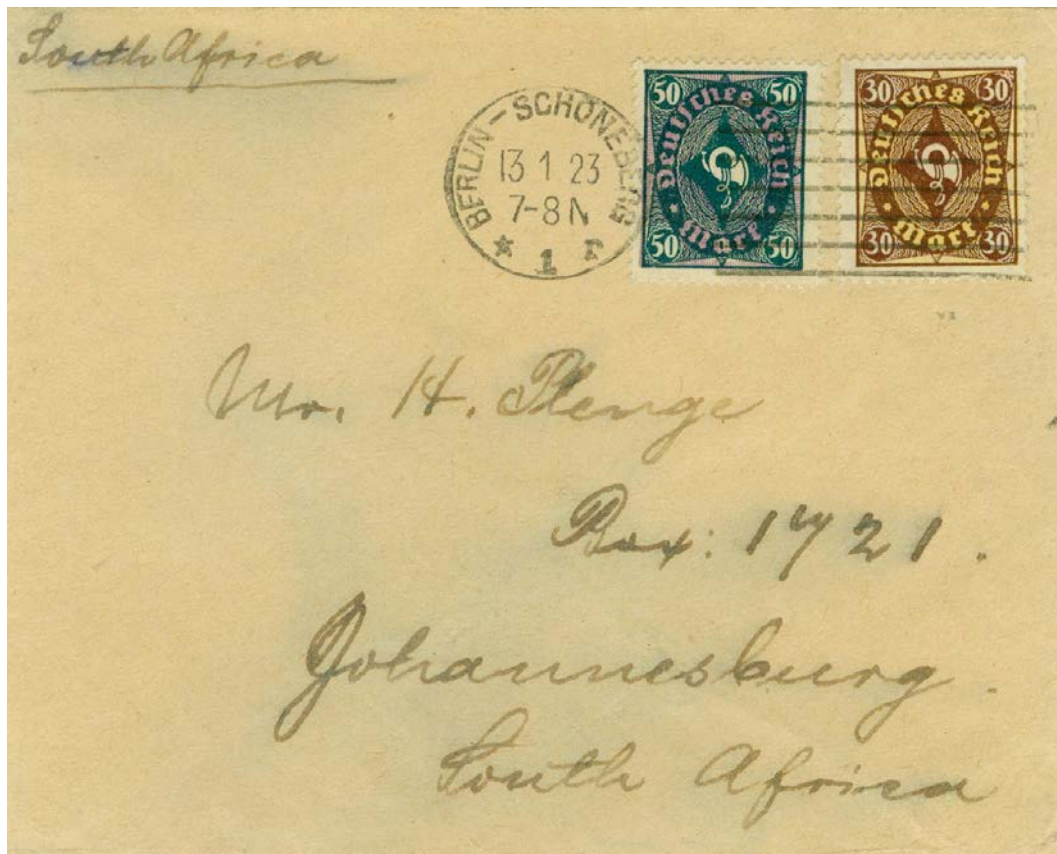 South Africa
BERLIN - SCHÖNEBERG
13 1 23
7-8 N
* 1 r
50 50
Deutsches Reich
Mark
50 50
30 30
Deutsches Reich
Mark
30 30
Mr. H. Plenge
Box: 1721.
Johannesburg.
South Africa